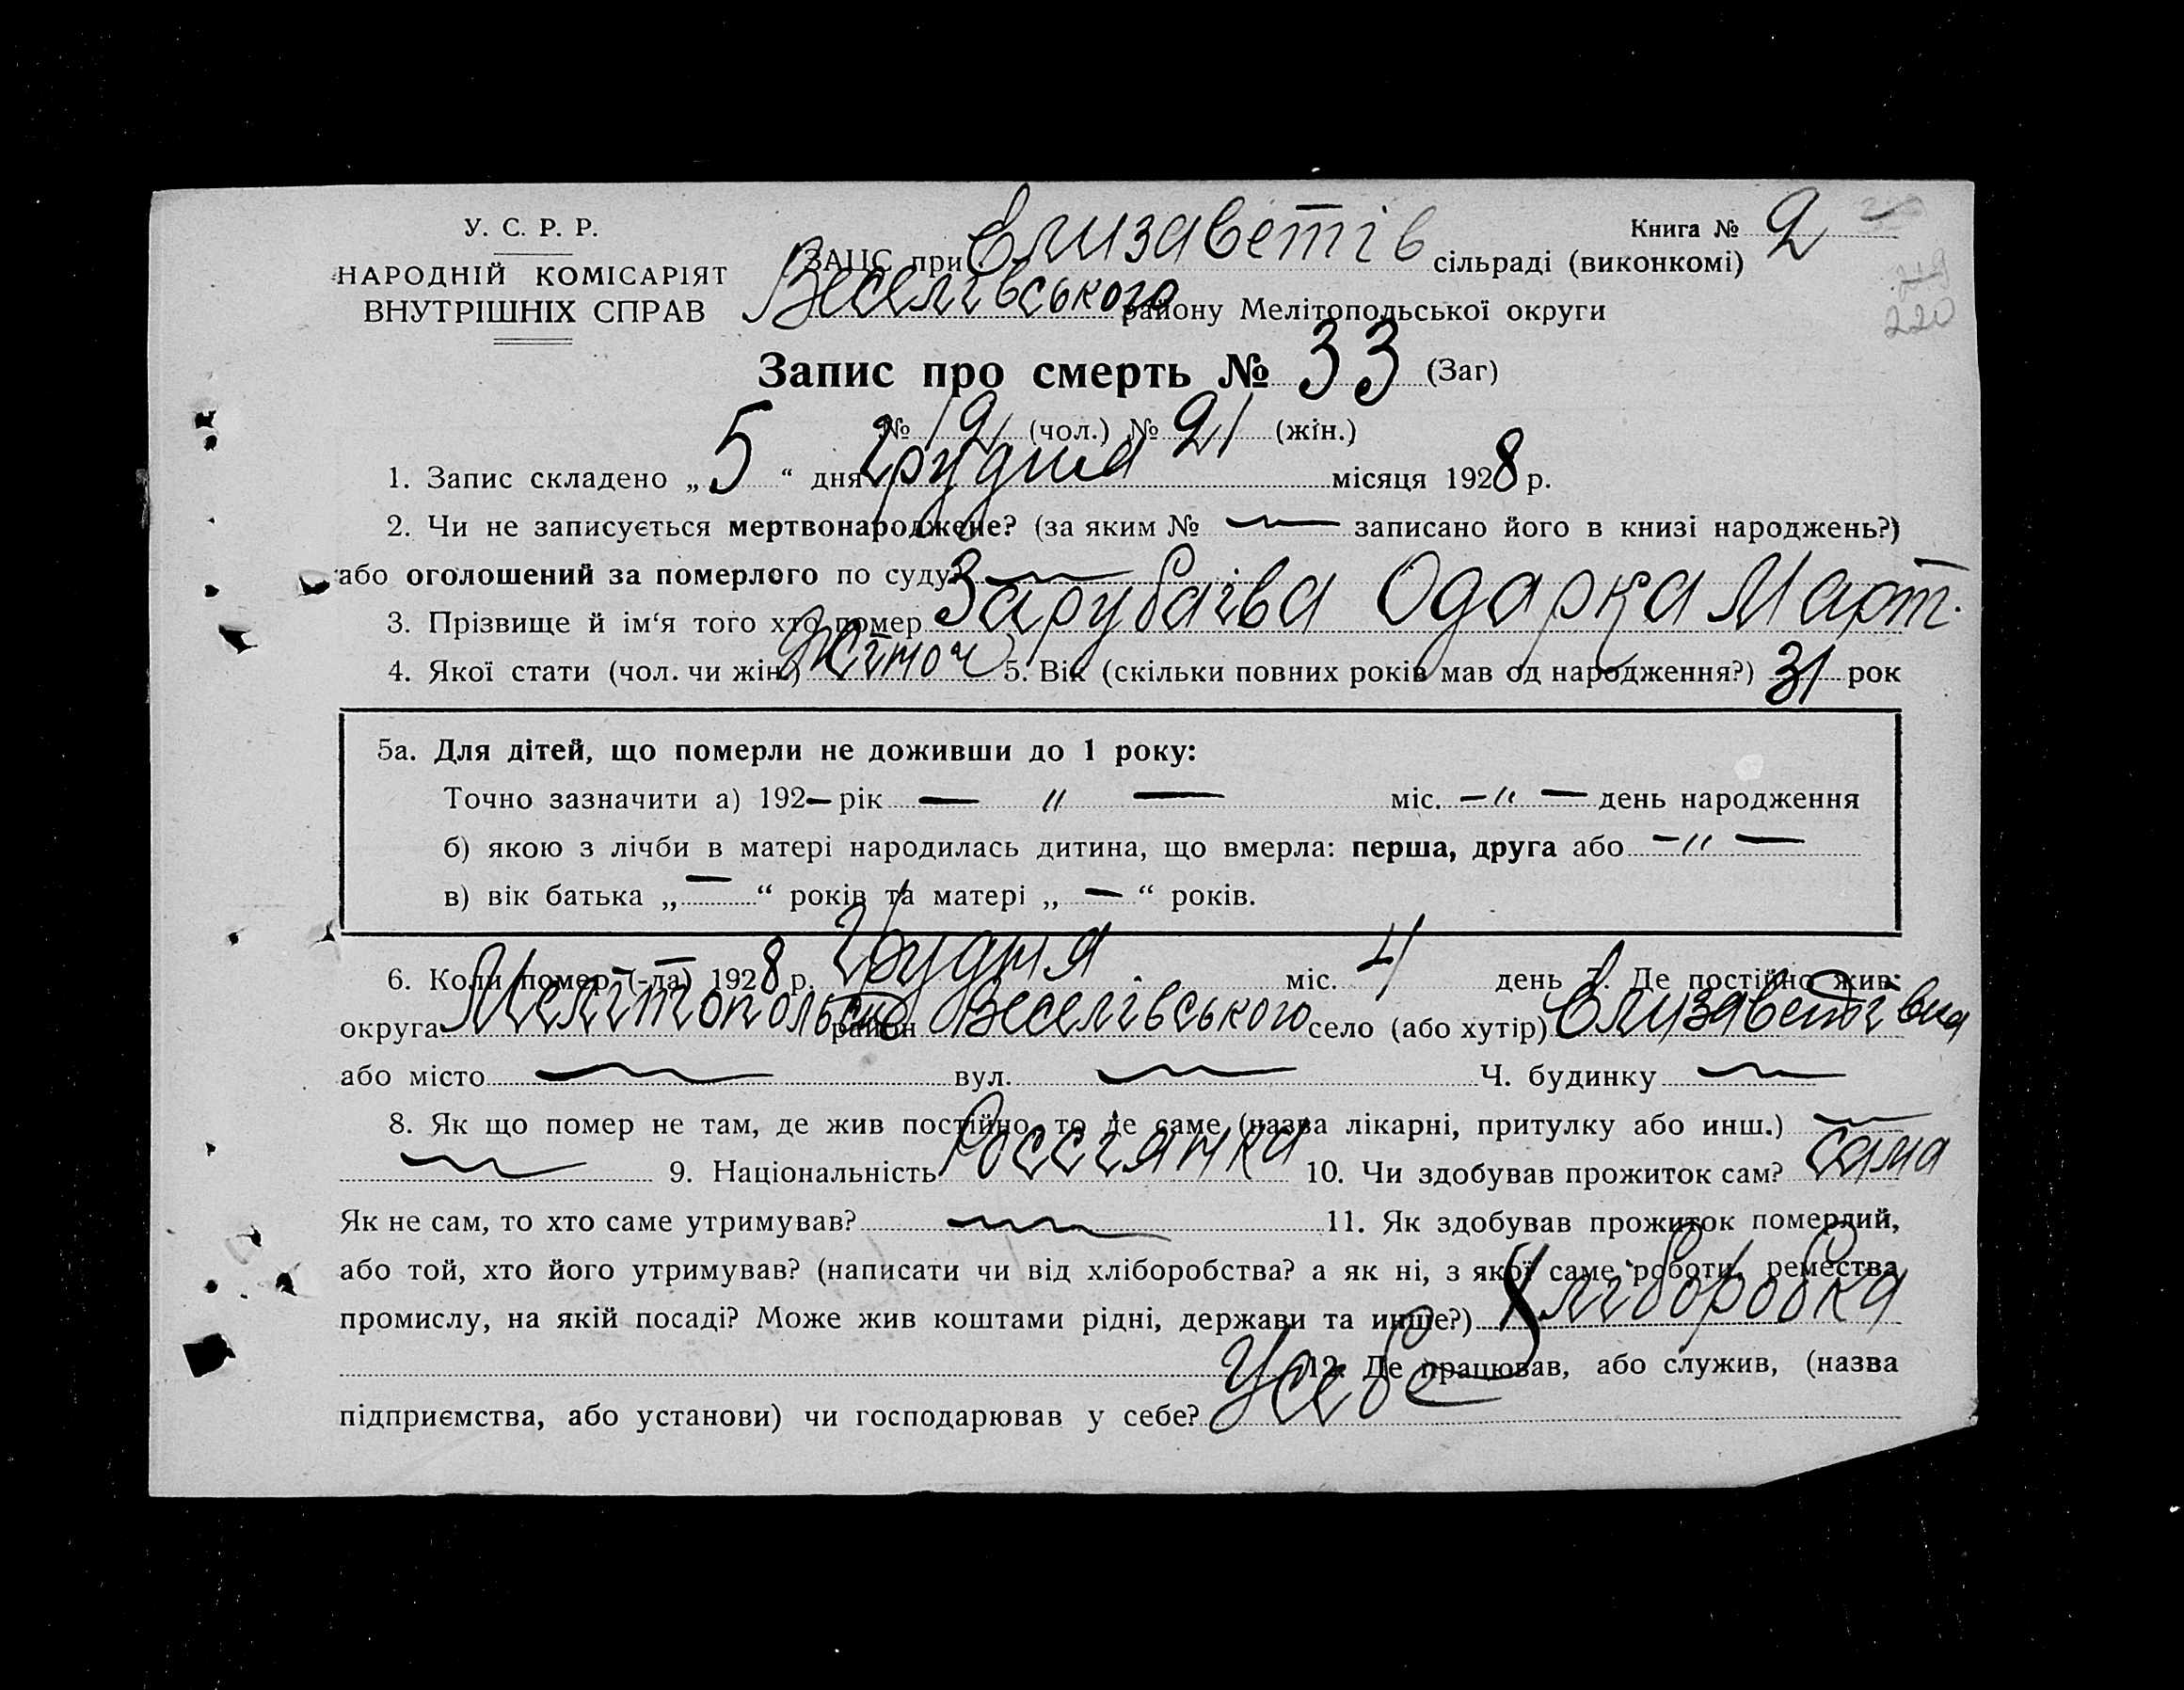 У. С. Р. Р.
НАРОДНІЙ КОМІСАРІЯТ
ВНУТРІШНІХ СПРАВ
Книга № 2
220
ЗАГС при Єлизаветів сільраді (виконкомі)
Веселівського району Мелітопольської округи
Запис про смерть № 33 (Заг)
№ 12 (чол.) № 21 (жін.)
1. Запис складено „ 5 “ дня Грудня місяця 1928 р.
2. Чи не записується мертвонароджене? (за яким № — записано його в книзі народжень?)
або оголошений за померлого по суду? —
3. Прізвище й ім‘я того хто помер Зарубаіва Одарка Март.
4. Якої стати (чол. чи жін.) Жіноч 5. Вік (скільки повних років мав од народження?) 31 рок
5а. Для дітей, що померли не доживши до 1 року:
Точно зазначити а) 192— рік — " — міс. — " — день народження
б) якою з лічби в матері народилась дитина, що вмерла: перша, друга або — " —
в) вік батька „ — “ років та матері „ — “ років.
6. Коли помер (-ла) 1928 р. Грудня міс. 4 день 7. Де постійно жив:
округа Мелітопольсько район Веселівського село (або хутір) Єлизаветівка
або місто — вул. — Ч. будинку —
8. Як що помер не там, де жив постійно, то де саме (назва лікарні, притулку або инш.) —
— 9. Національність Россіянка 10. Чи здобував прожиток сам? Сама
Як не сам, то хто саме утримував? — 11. Як здобував прожиток померлий,
або той, хто його утримував? (написати чи від хліборобства? а як ні, з якої саме роботи, ремества
промислу, на якій посаді? Може жив коштами рідні, держави та инше?) Хліборобка
12. Де працював, або служив, (назва
підприємства, або установи) чи господарював у себе? У себе